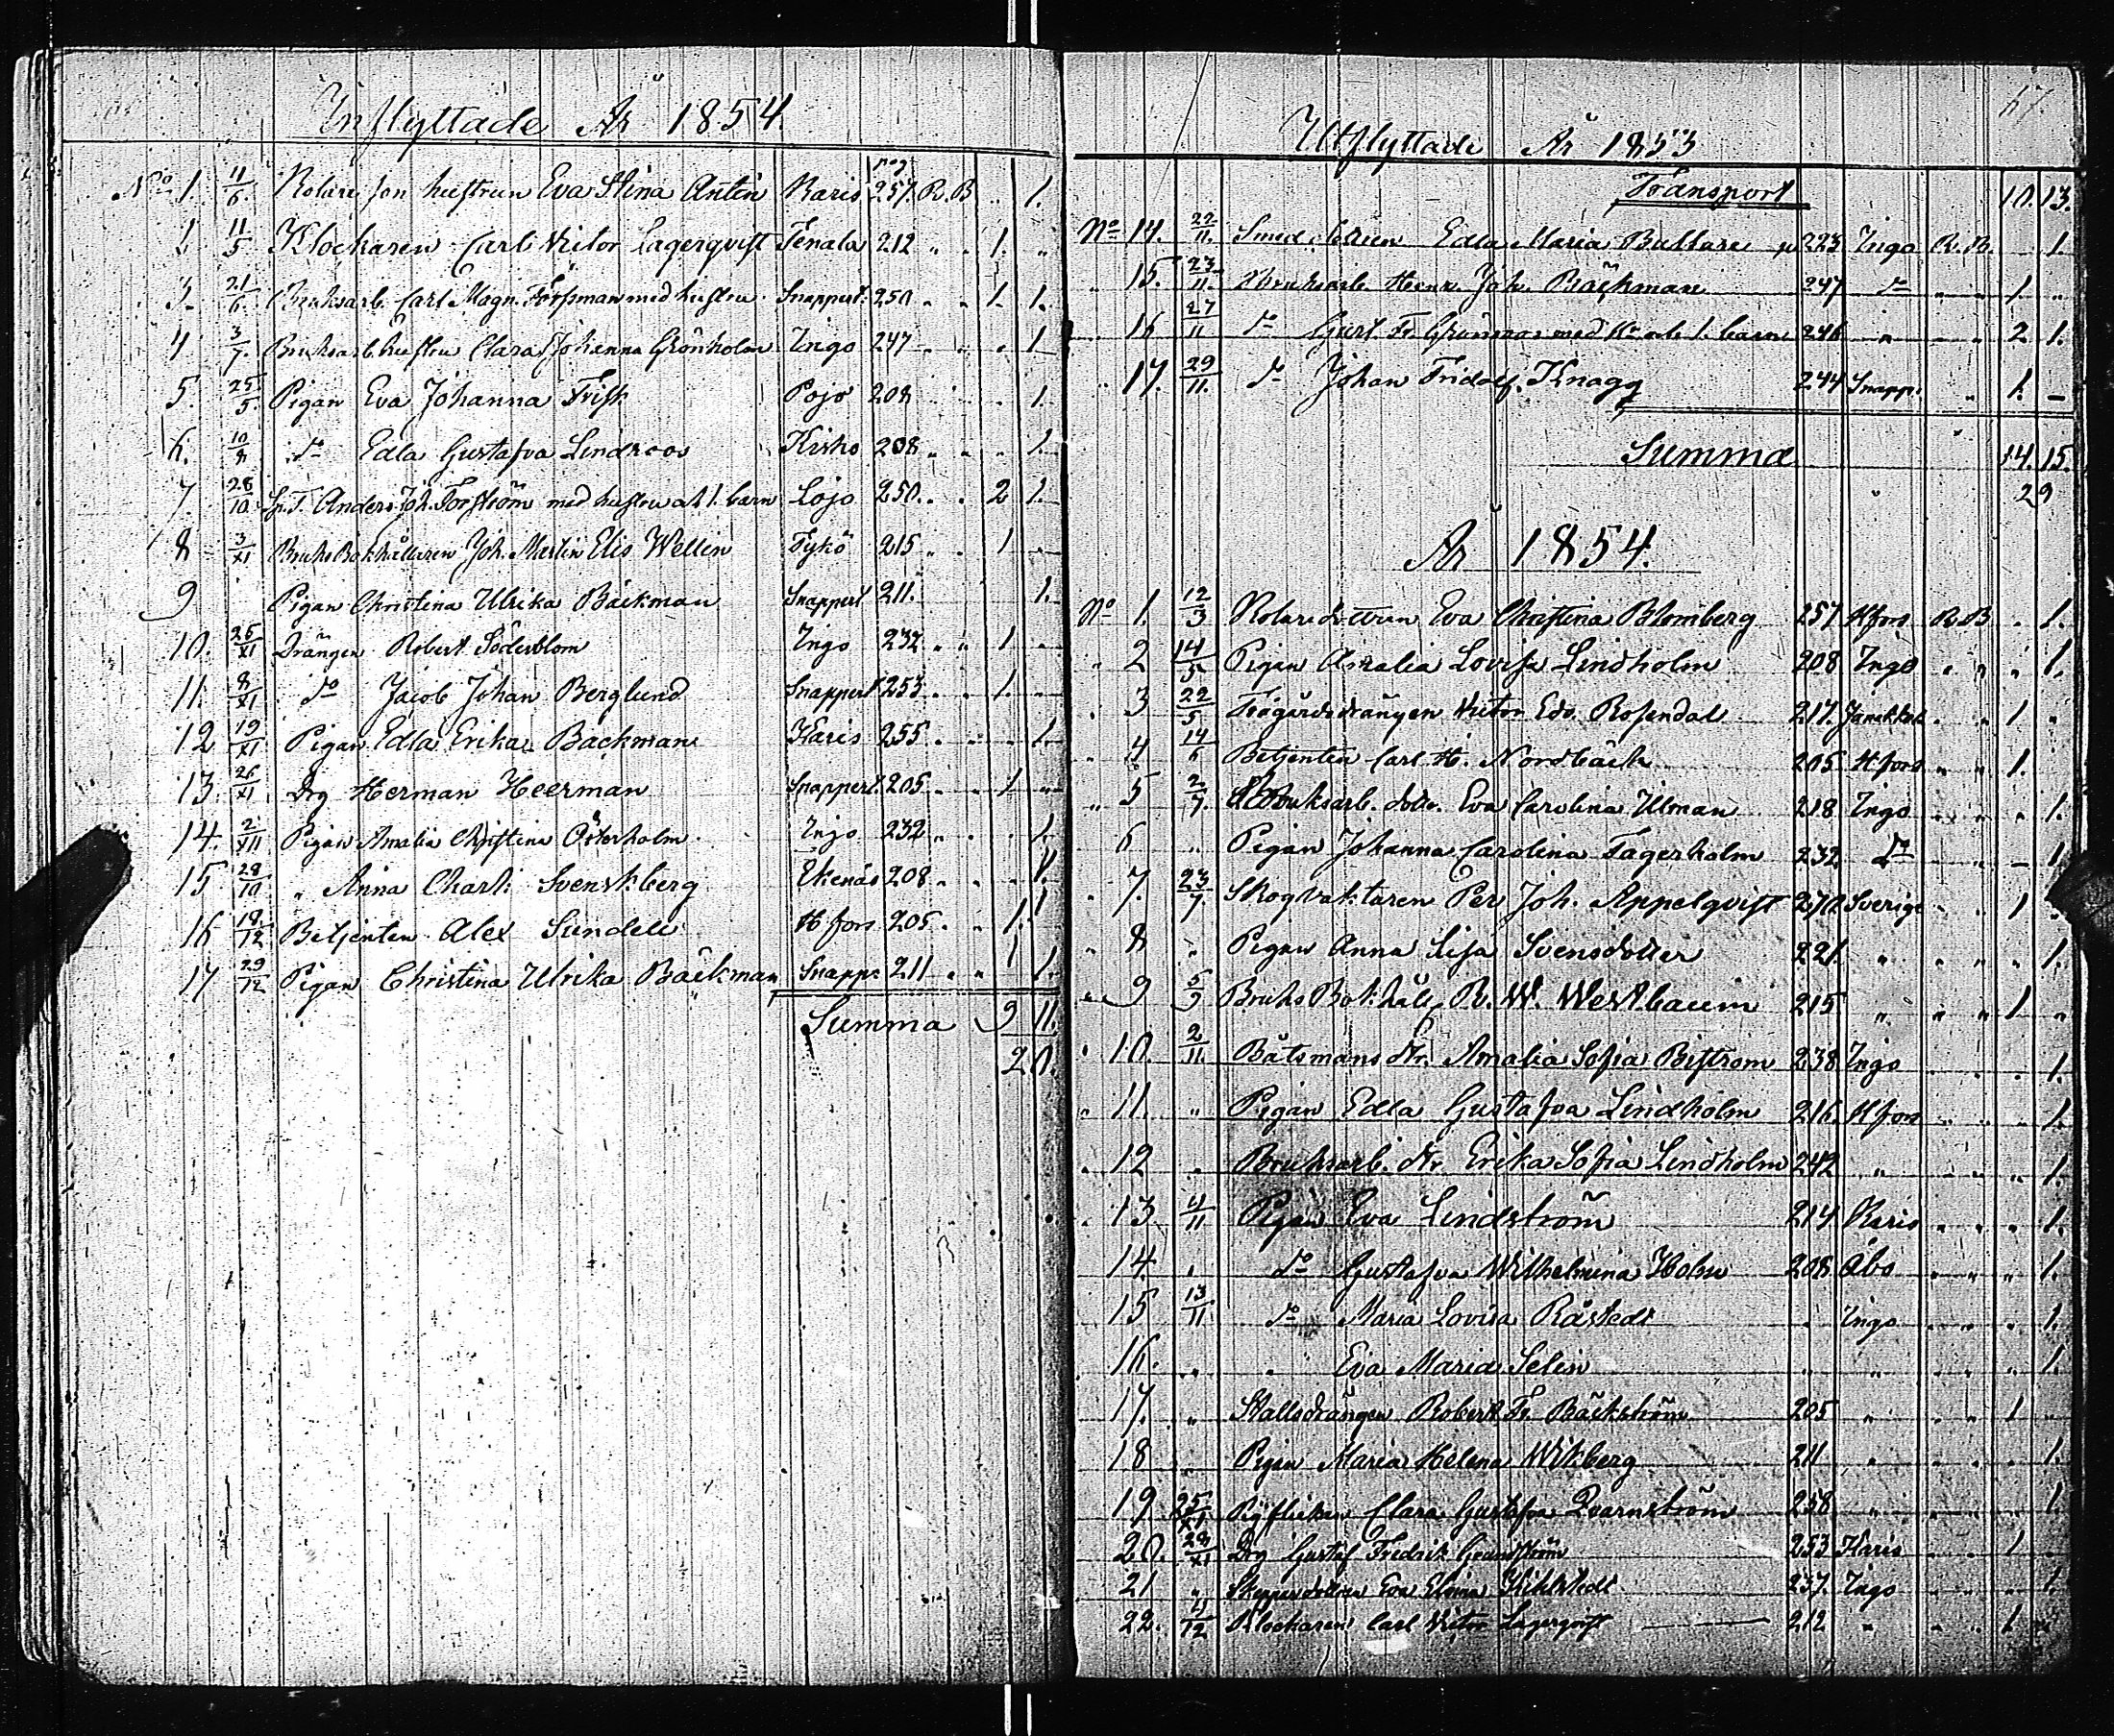 Inflyttade År 1854.
pag
No 1. 11/6. Notarie hustrun Eva Stina Antin Karis 257. R. B .. 1.
11/5 Klockaren Carl Victor Lagerqvist Tenala 212 " . 1. "
3. 21/6 Bruksarb. Carl Magn. Forssman med hustru Snappert. 250 " " 1. 1.
4 3/7. Bruksarb. hustru Clara Johanna Grönholm Ingo 247 " " . 1
5. 25/5. Pigan Eva Johanna Frisk Pojo 208 " . . 1.
6. 10/8 do Edla Gustafva Lindroos Kisko 208 " . . 1.
7. 28/10 Anders Joh. Forsström med hustru och 1. barn Lojo 250. . . 2 1.
8 3/XI Bruks Bokhållaren Joh. Martin Elis Wellin Tykö 215 " . 1 "
9 Pigan Christina Ulrika Bäckman Snappert 211. 1.
10. 26/XI Drängen Robert Söderblom Ingo 232 " " 1 "
11. 8/XI do Jacob Johan Berglund Snappert 253 . . 1. "
12 19/XI Pigan Edla Erika Backman Karis 255 . . . 1.
13. 26/XI Drg Herman Heerman Snappert. 205 . . 1 "
14. 2/XII Pigan Amalia Christina Österholm Ingo 232 " . . 1.
15 28/10 " Anna Charl: Svenskberg Ekenäs 208 . . . 1.
16 18/12 Betjenten Alex Sundell H fors 205. . 1.
17 29/12 Pigan Christina Ulrika Bäckman Snapp: 211 . " 1.
Summa 9 11.
20.
67.
Utflyttade År 1853
Transport 10. 13.
No 14. 22/11. Smed Edla Maria p 223 Ingo R. B. 1.
" 15. 23/11. Bruksarb. Henr. Joh. Bäckman 247 do " " 1 "
" 16 27/11 do Gust. Fr. Grönroos med hu och 1. barn 246 " " 2 1.
" 17. 29/11. do Johan Fridolf Knagg 244 Snapp: " 1. –
Summa 14. 15.
29
År 1854.
No 1. 12/3 Notarie dottren Eva Christina Blomberg 257 H fors R. B . 1.
" 2 14/5 Pigan Amalia Lovisa Lindholm 208 Ingo . " " 1.
" 3 22/5 Trägårdsdrängen Victor Edv. Rosendal 217. Janakkal . " 1 "
" 4 14/6 Betjenten Carl H. Nordbäck 205 H fors " " 1.
" 5 2/7. Bruksarb. dotr. Eva Carolina Ulman 218 Ingo " " . 1.
6 " Pigan Johanna Carolina Fagerholm 232 do " – 1.
" 7. 23/7. Skogvaktaren Per Joh. Appelqvist 270. Sverige " . 1
" 8 " Pigan Anna Lisa Svensdotter 221. " . " " 1.
" 9 5/9 Bruks Bokhåll. R. W. Westbaum 215 " " " 1 "
" 10. 2/11. Båtsmans dtr. Amalia Sofia Biström 238 Ingo . . . 1.
" 11. " Pigan Edla Gustafva Lindholm 216. H fors . . " 1.
" 12 " Bruksarb. dtr Erika Sofia Lindholm 242 " . . " 1.
" 13 11/11 Pigan Eva Lindström 214 Karis . . " 1.
14. " do Gustafva Wilhelmina Holm 208 Åbo . " " 1.
15 13/11 do Maria Lovisa Råstedt " Ingo . " " 1.
16. " " Eva Maria Selin " " " " " 1.
17. " Stallsdrängen Robert Fr. Bäckström 205 " . " 1 "
18 " Pigan Maria Helena Wikberg 211 " . . . 1.
19 25/XI Pigflickan Clara Gustafva Qvarnström 258 " . . " 1
20. 28/XI Drg Gustaf Fredrik Grundström 253 Karis . . 1 "
21 " Skeppardottren Eva 237. Ingo . . " 1
22. 4/12 Klockaren Carl Victor Lagerqvist 212 " . " 1